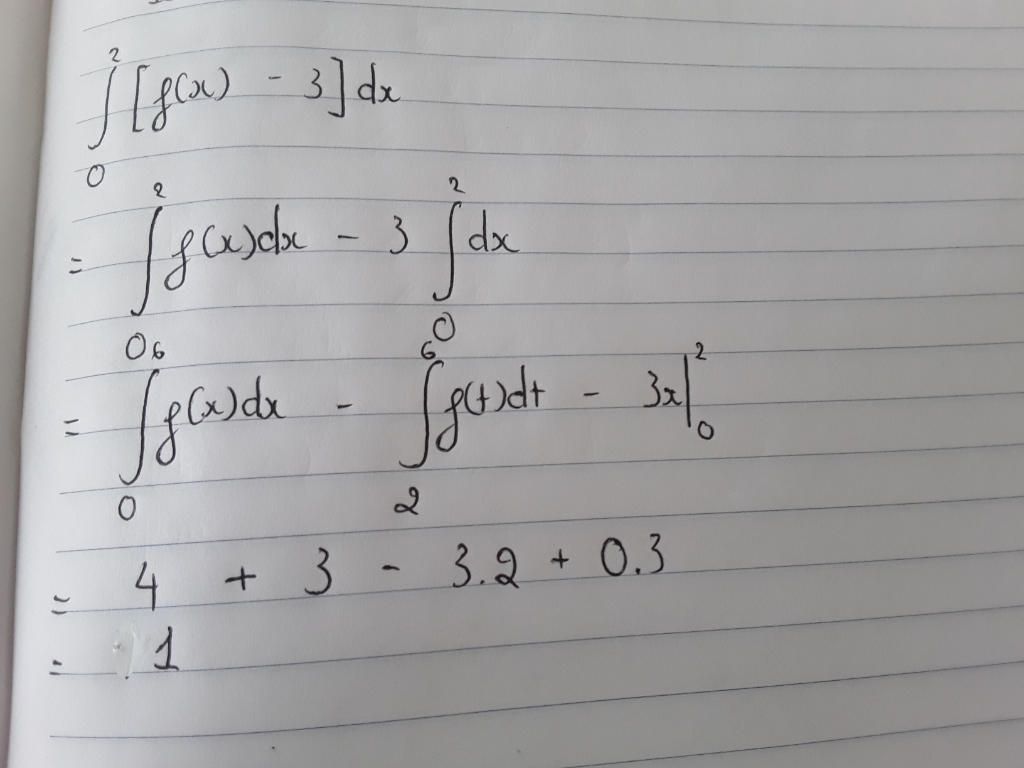 ∫₀² [f(x) - 3] dx
= ∫₀² f(x)dx - 3 ∫₀² dx
= ∫₀⁶ f(x)dx - ∫₂⁶ f(t)dt - 3x|₀²
= 4 + 3 - 3.2 + 0.3
= 1